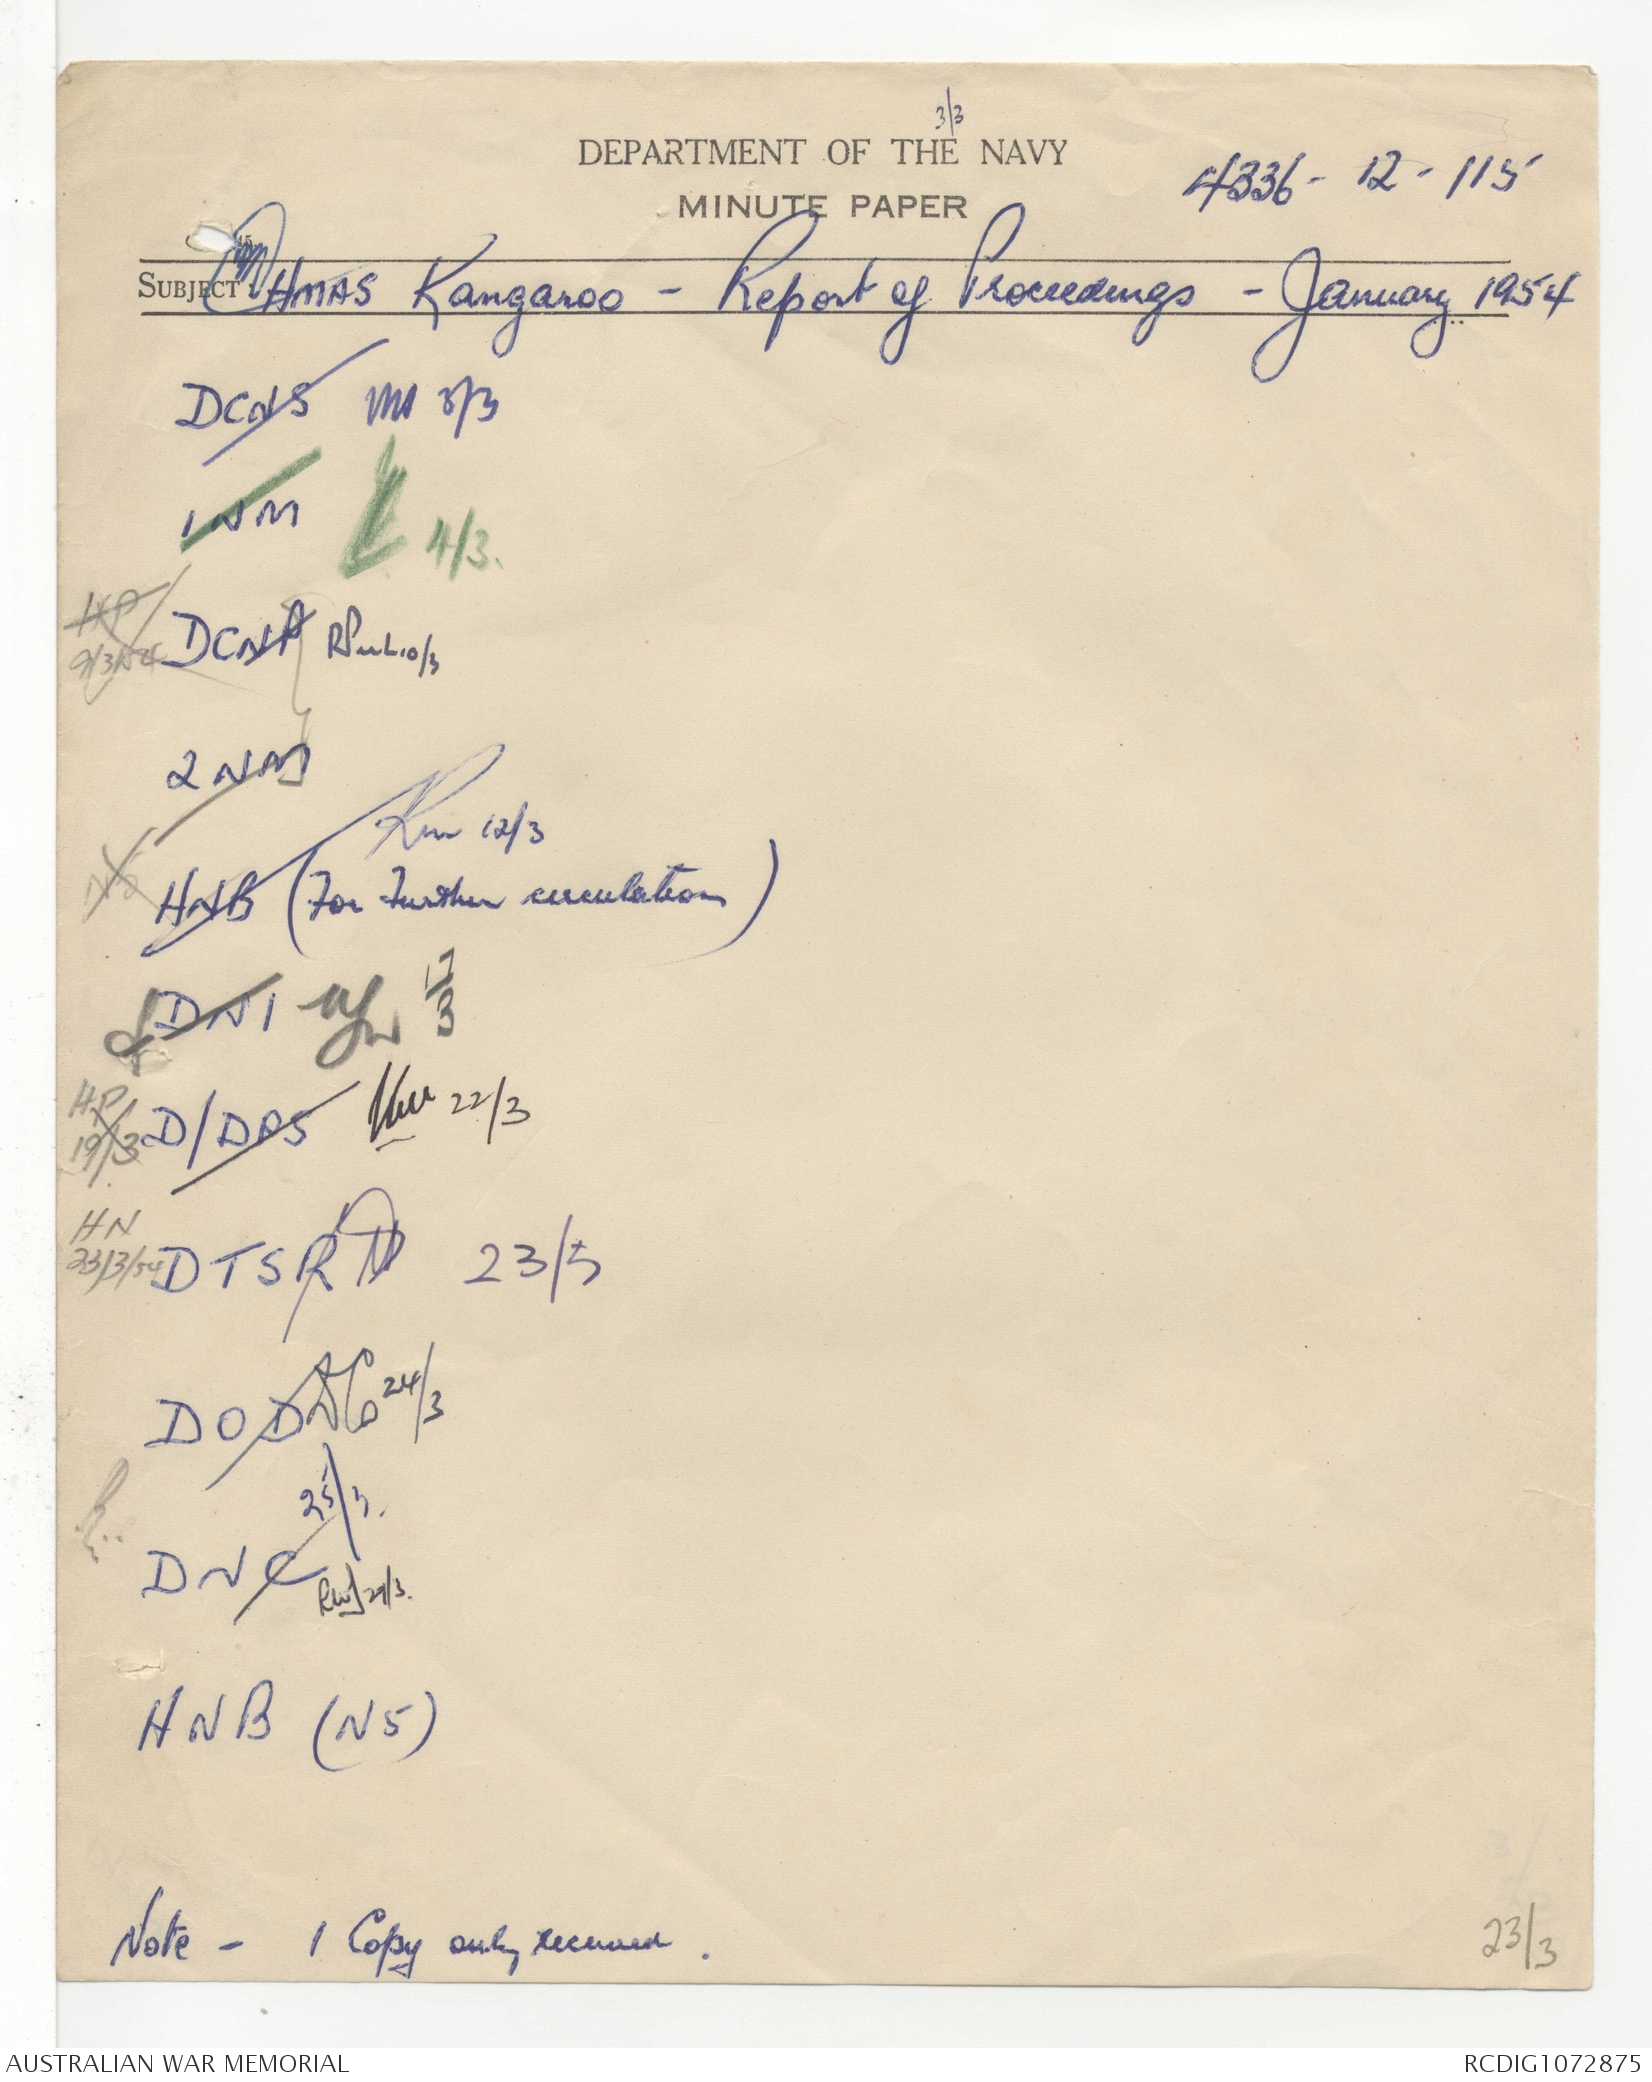 3/3
DEPARTMENT OF THE NAVY
MINUTE PAPER
4336-12-115
SUBJECT HMAS Kangaroo - Report of Proceedings - January 1954
DCNS 3/3
1NM 4/3.
HP
9/3/54 DCNP 10/3
2NM
12/3
N2 HNB (For Further circulation)
DNI 17/3
HP
19/3 D/DPS 22/3
HN
23/3/54 DTSR 23/3
DOD 24/3
25/3.
DNC 29/3.
HNB (N5)
Note - 1 Copy only received.
23/3
AUSTRALIAN WAR MEMORIAL
RCDIG1072875